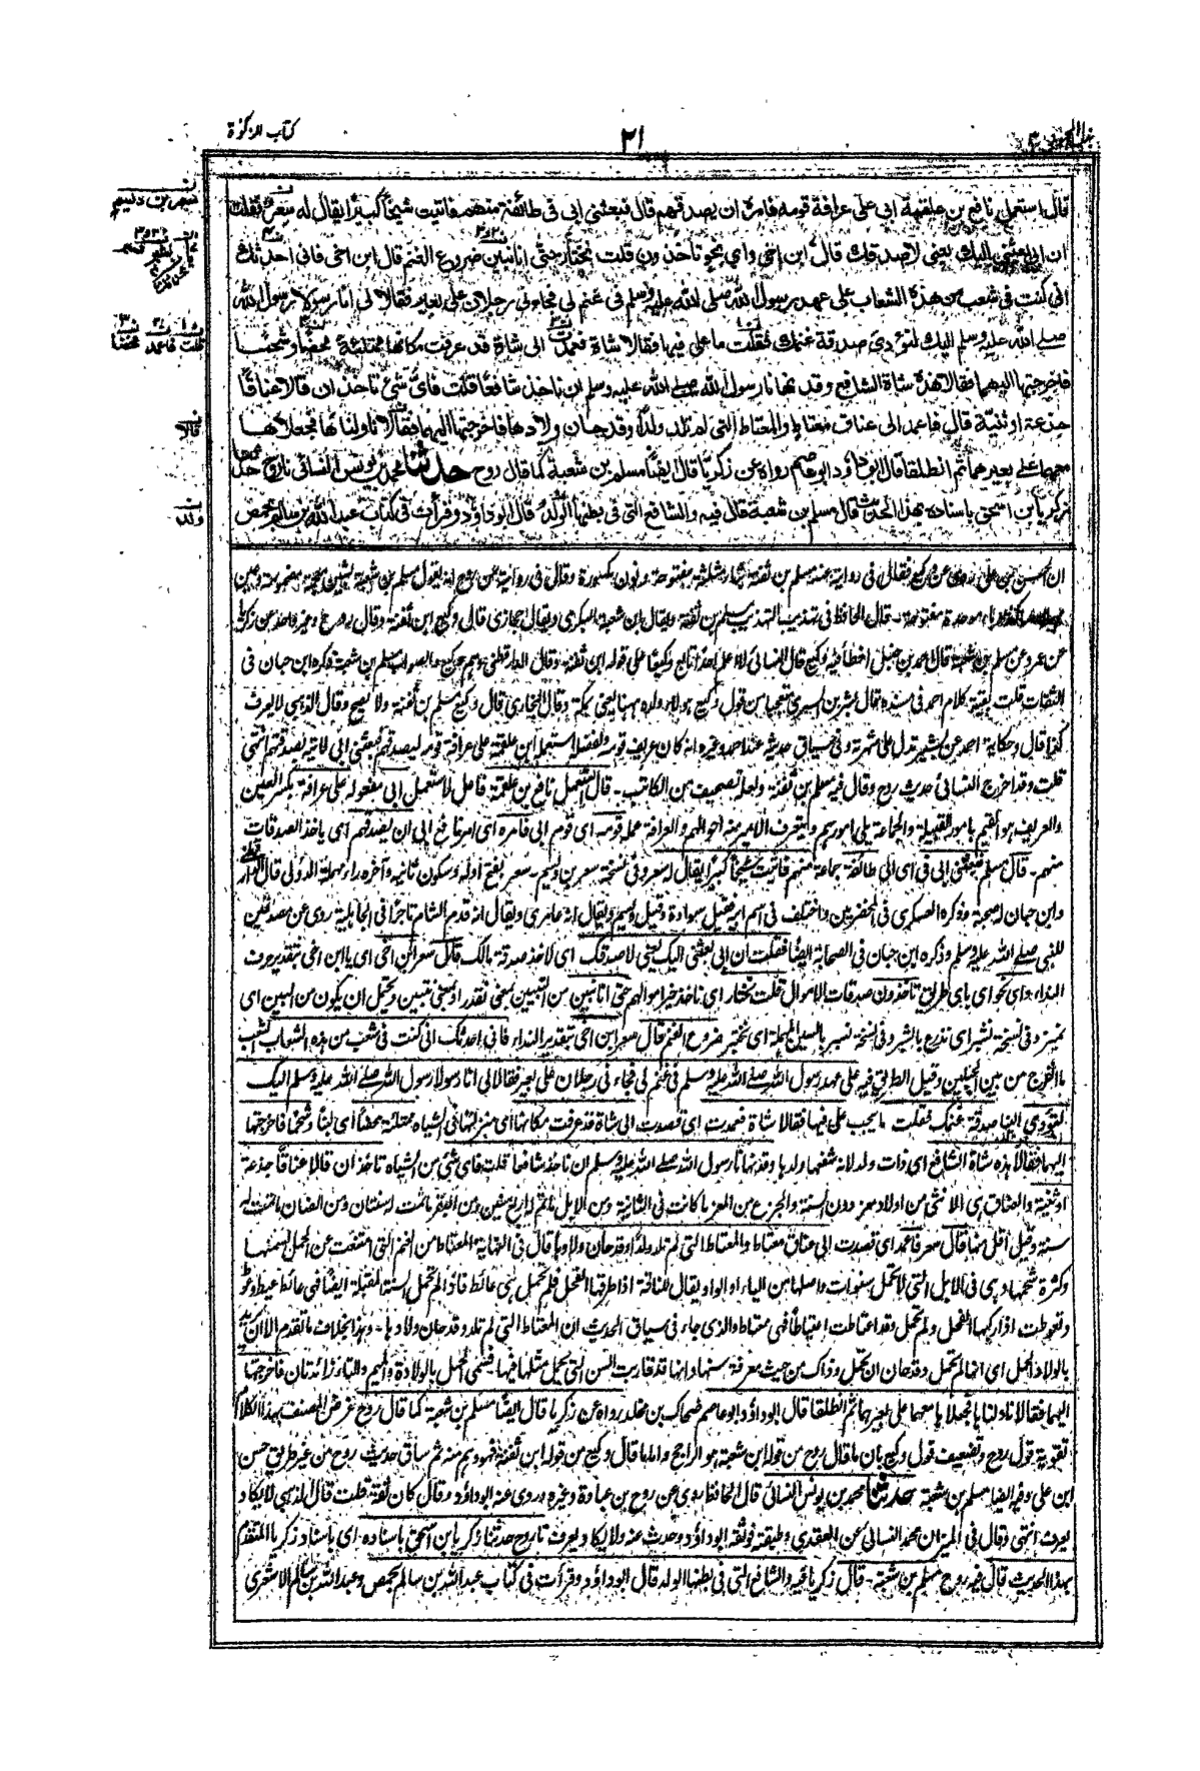 كتاب الزكوة
٢١
قال استعمل نافع بن علقمة ابي على عرافة قومه فامره ان يصدقهم قال فبعثني ابي في طائفة منهم فاتيت شيخا كبيرا يقال له سعر فقلت
ان ابي بعثني اليك يعني لاصدقك قال ابن اخي واي نحو تاخذون قلت نختار حتى انا نتبين ضروع الغنم قال ابن اخي فاني احدثك
اني كنت في شعب من هذه الشعاب على عهد رسول الله صلى الله عليه وسلم في غنم لي فجاءني رجلان على بعير فقالا لي انا رسولا رسول الله
صلى الله عليه وسلم اليك لتؤدي صدقة غنمك فقلت ما علي فيها فقالا شاة فعمدت الى شاة قد عرفت مكانها ممتلئة محضا وشحما
فاخرجتها اليهما فقالا هذه شاة الشافع وقد نهانا رسول الله صلى الله عليه وسلم ان ناخذ شافعا قلت فاي شئ تاخذان قالا عناقا
جذعة او ثنية قال فاعمد الى عناق معتاط والمعتاط التي لم تلد ولدا وقد حان ولادها فاخرجتها اليهما فقالا ناولناها فجعلاها
معهما على بعيرهما ثم انطلقا قال ابو داؤد ابو عاصم رواه عن زكريا قال ايضا مسلم بن شعبة كما قال روح حدثنا محمد بن يونس النسائي نا روح
زكريا بن اسحق باسناده بهذا الحديث قال مسلم بن شعبة قال فيه والشافع التي في بطنها الولد قال ابو داؤد وقرأت في كتاب عبد الله بن سالم بحمص
ان الحسن بن علي روى عن وكيع فقال في رواية عنه مسلم بن ثفنة بثاء مثلثة مفتوحة ونون مكسورة وقال في رواية عن روح انه يقول مسلم بن شعبة بشين معجمة مضمومة وعين
موحدة مفتوحة - قال الحافظ في تهذيب التهذيب مسلم بن ثفنة ويقال ابن شعبة البكري ويقال حجازي قال وكيع ابن ثفنة وقال روح وغير واحد عن زكريا
عن عمرو عن مسلم بن شعبة قال احمد بن حنبل اخطأ فيه وكيع قال النسائي لا اعلم احدا تابع وكيعا على قوله ابن ثفنة وقال الدارقطني وهم وكيع والصواب مسلم بن شعبة ذكره ابن حبان في
الثقات قلت بقية كلام احمد في مسنده قال بشر بن السري متعجبا من قول وكيع هؤلاء ولده ههنا يعني بمكة وقال البخاري قال وكيع مسلم بن ثفنة ولا يصح وقال الذهبي لا يعرف
كذا قال وحكاية احمد عن بشر تدل على شهرته وفي سياق حديثه عند احمد وغيره انه كان عريف قومه ولفظه استعمل ابن علقمة على عرافة قومه ليصدقهم فبعثني ابي لآتيه بصدقتهم انتهى
قلت وقد اخرج النسائي حديث روح وقال فيه مسلم بن ثفنة ولعله تصحيف من الكاتب - قال استعمل نافع بن علقمة فاعل لاستعمل ابي مفعوله على عرافة بكسر العين
والعريف هو القيم بامور القبيلة والجماعة يلي امورهم ويتعرف الامير منه احوالهم والعرافة عمله قومه اي قوم ابي فامره اي امر نافع ابي ان يصدقهم اي ياخذ الصدقات
منهم - قال مسلم فبعثني ابي في اي الى طائفة جماعة منهم فاتيت شيخا كبيرا يقال له سعر وفي نسخة سعر بن ديسم - سعر بفتح اوله وسكون ثانيه وآخره راء مهملة الدؤلي قال
وابن حبان له صحبة وذكره العسكري في المخضرمين واختلف في اسم ابيه فقيل سوادة وقيل ديسم ويقال انه عامري ويقال انه قدم الشام تاجرا في الجاهلية روى عن مصدقين
للنبي صلى الله عليه وسلم وذكره ابن حبان في الصحابة ايضا فقلت ان ابي بعثني اليك يعني لاصدقك اي لآخذ صدقة مالك قال سعر ابن اخي اي يا ابن اخي بتقدير حرف
النداء واي نحو اي باي طريق تاخذون صدقات الاموال قلت نختار اي ناخذ خير اموالهم حتى انا نتبين من التبيين بمعنى نقدر او بمعنى نتبين ويحتمل ان يكون من البين اي
نميز وفي نسخة نشبر اي نذرع بالشبر وفي نسخة نسبر بالسين المهملة اي نختبر ضروع الغنم قال سعر ابن اخي بتقدير النداء فاني احدثك اني كنت في شعب من هذه الشعاب الشعب
ما انفرج من بين الجبلين وقيل الطريق فيه على عهد رسول الله صلى الله عليه وسلم في غنم لي فجاءني رجلان على بعير فقالا لي انا رسولا رسول الله صلى الله عليه وسلم اليك
لتؤدي الينا صدقة غنمك فقلت ما يجب علي فيها فقالا شاة فعمدت اي قصدت الى شاة قد عرفت مكانها اي منزلتها في الشياه ممتلئة محضا اي لبنا وشحما فاخرجتها
اليهما فقالا هذه شاة الشافع اي ذات ولد لانه شفعها ولدها وقد نهانا رسول الله صلى الله عليه وسلم ان ناخذ شافعا قلت فاي شئ من الشياه تاخذان قالا عناقا جذعة
او ثنية والعناق هي الانثى من اولاد معز دون السنة والجذع من المعز ما كانت في الثانية ومن الابل ما تم له اربع سنين ومن البقر ما تمت له سنتان ومن الضان ما تمت له
سنة وقيل اقل منها قال سعر فاعمد اي قصدت الى عناق معتاط والمعتاط التي لم تلد ولدا وقد حان ولادها قال في النهاية المعتاط من الغنم التي امتنعت عن الحمل لسمنها
وكثرة شحمها وهي في الابل التي لا تحمل سنوات واصلها من الياء او الواو ويقال للناقة اذا طرقها الفحل فلم تحمل هي عائط فاذا لم تحمل السنة المقبلة ايضا فهي عائط عيط وعوط
وتعوطت اذا ركبها الفحل ولم تحمل وقد اعتاطت اعتياطا فهي معتاط والذي جاء في سياق الحديث ان المعتاط التي لم تلد وقد حان ولادها - وهذا بخلاف ما تقدم الا ان يريد
بالولاد الحمل اي انها لم تحمل وقد حان ان تحمل وذاك من حيث معرفة سنها وانها قد قاربت السن التي يحمل مثلها فيها - فسمي الحمل بالولادة والميم والتاء زائدتان فاخرجتها
اليهما فقالا ناولناها فجعلاها معهما على بعيرهما ثم انطلقا قال ابو داؤد ابو عاصم ضحاك بن مخلد رواه عن زكريا قال ايضا مسلم بن شعبة كما قال روح غرض المصنف بهذا الكلام
تقوية قول روح وتضعيف قول وكيع بان ما قال روح من قوله ابن شعبة هو الراجح واما ما قال وكيع من قوله ابن ثفنة فهو وهم منه ثم ساق حديث روح من غير طريق حسن
ابن علي وفيه ايضا مسلم بن شعبة حدثنا محمد بن يونس النسائي قال الحافظ روى عن روح بن عبادة وغيره وروى عنه ابو داؤد وقال كان ثقة قلت قال الذهبي لا يكاد
يعرف انتهى وقال في الميزان محمد النسائي عن العقدي وطبقته فوثقه ابو داؤد وحدث عنه ولا يكاد يعرف نا روح حدثنا زكريا بن اسحق باسناده اي باسناد زكريا المتقدم
بهذا الحديث قال فيه روح مسلم بن شعبة - قال زكريا فيه والشافع التي في بطنها الولد قال ابو داؤد وقرأت في كتاب عبد الله بن سالم بحمص وعبد الله بن سالم الاشعري